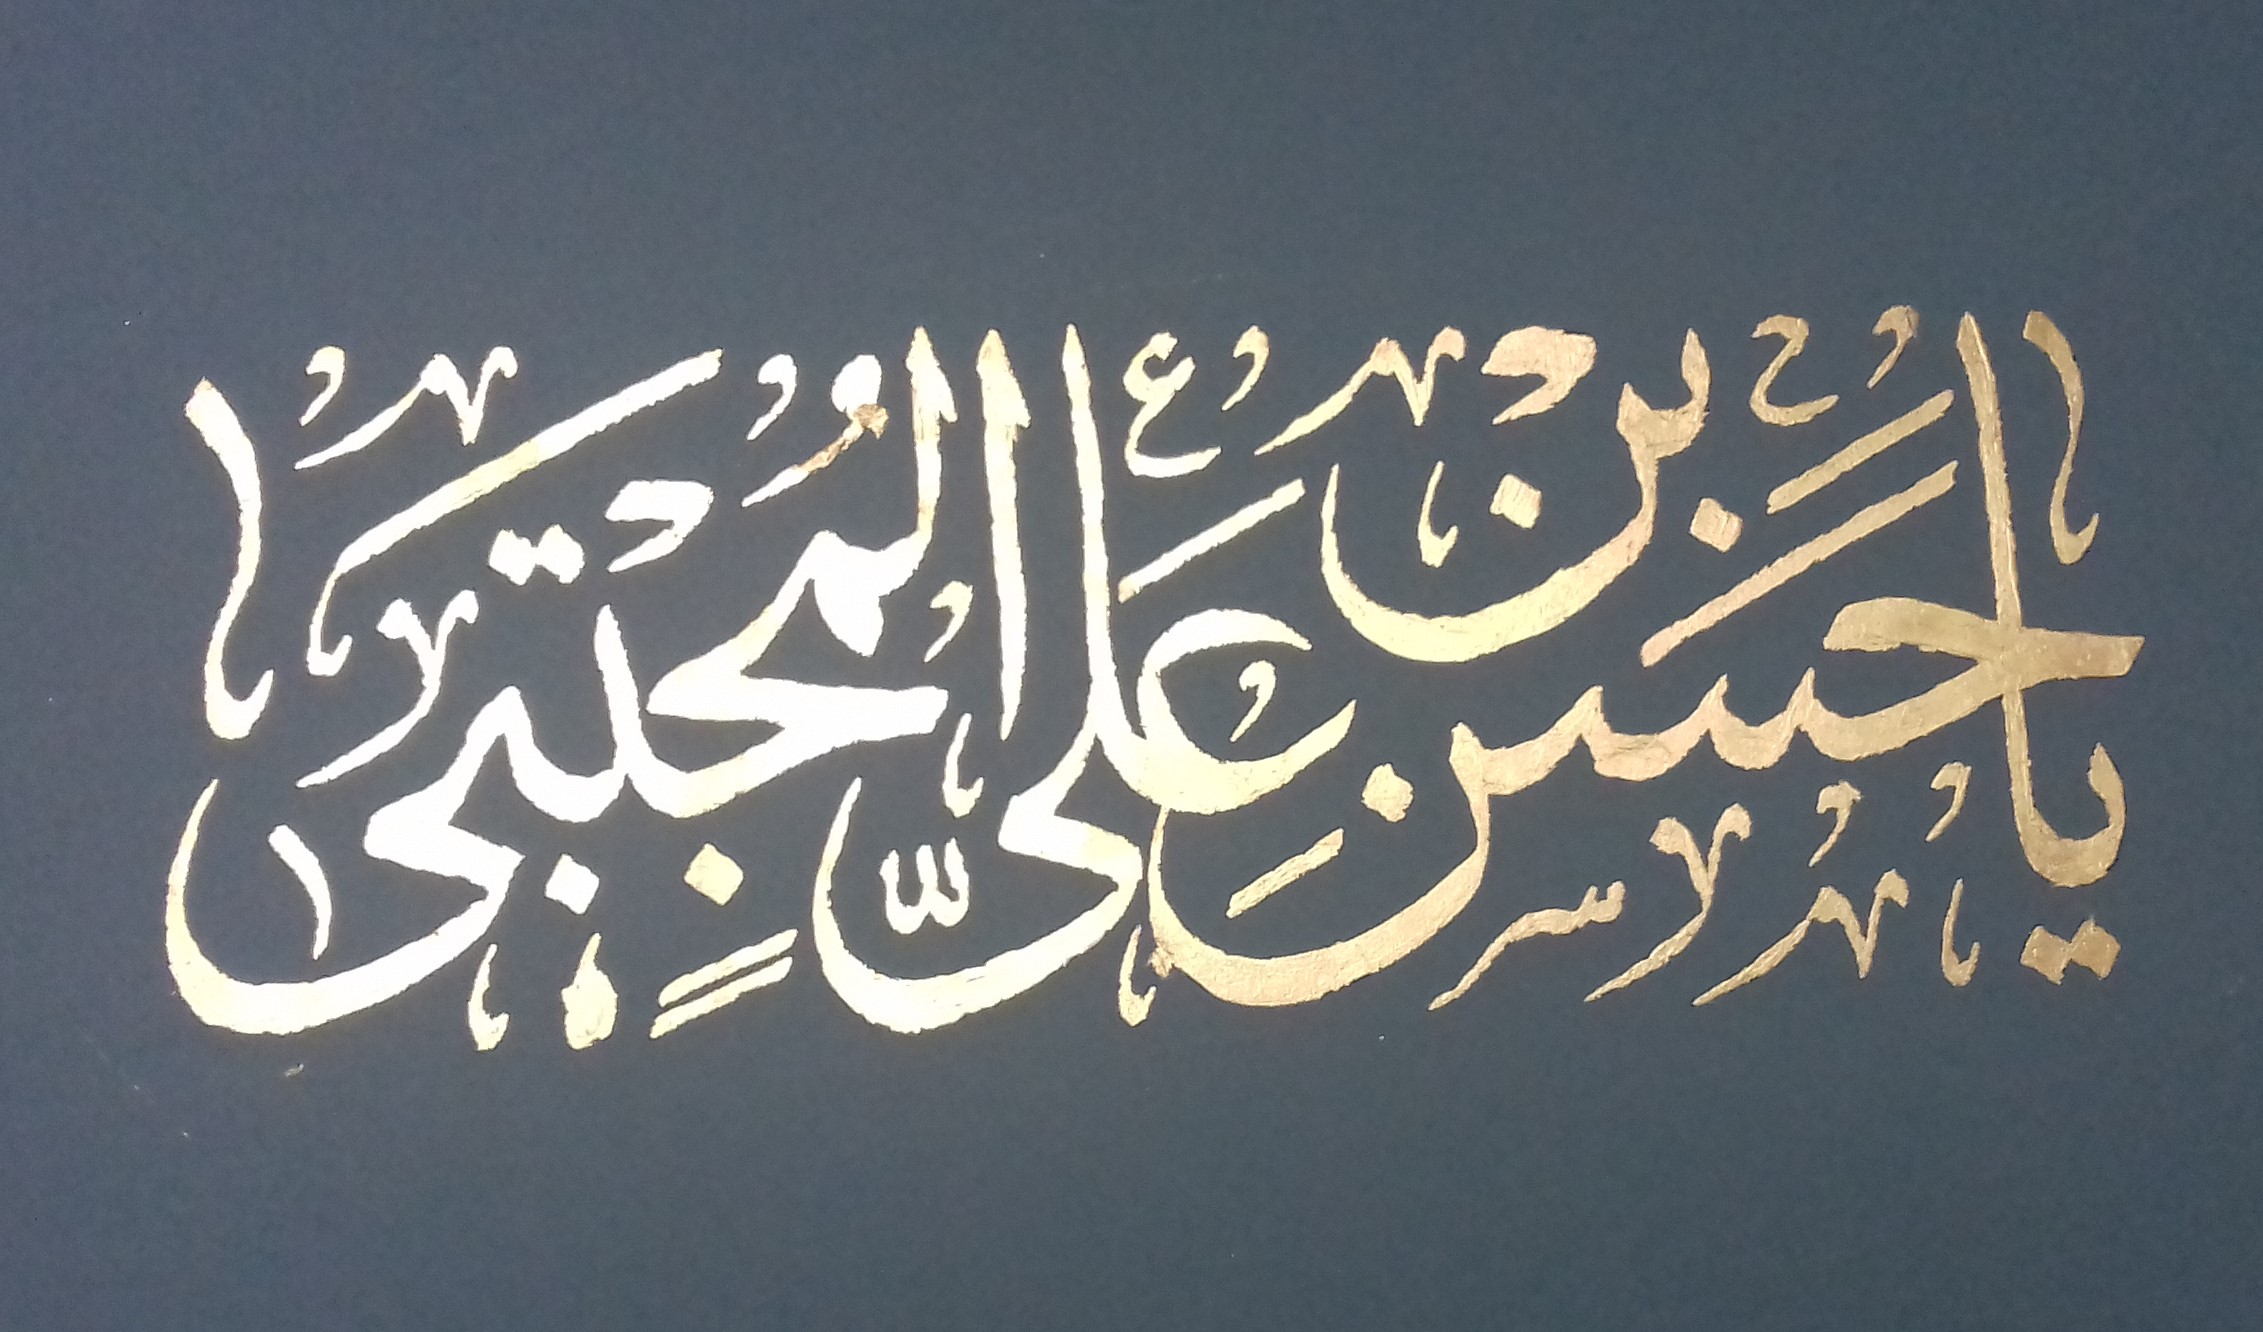 یا حسن بن علی المجتبی